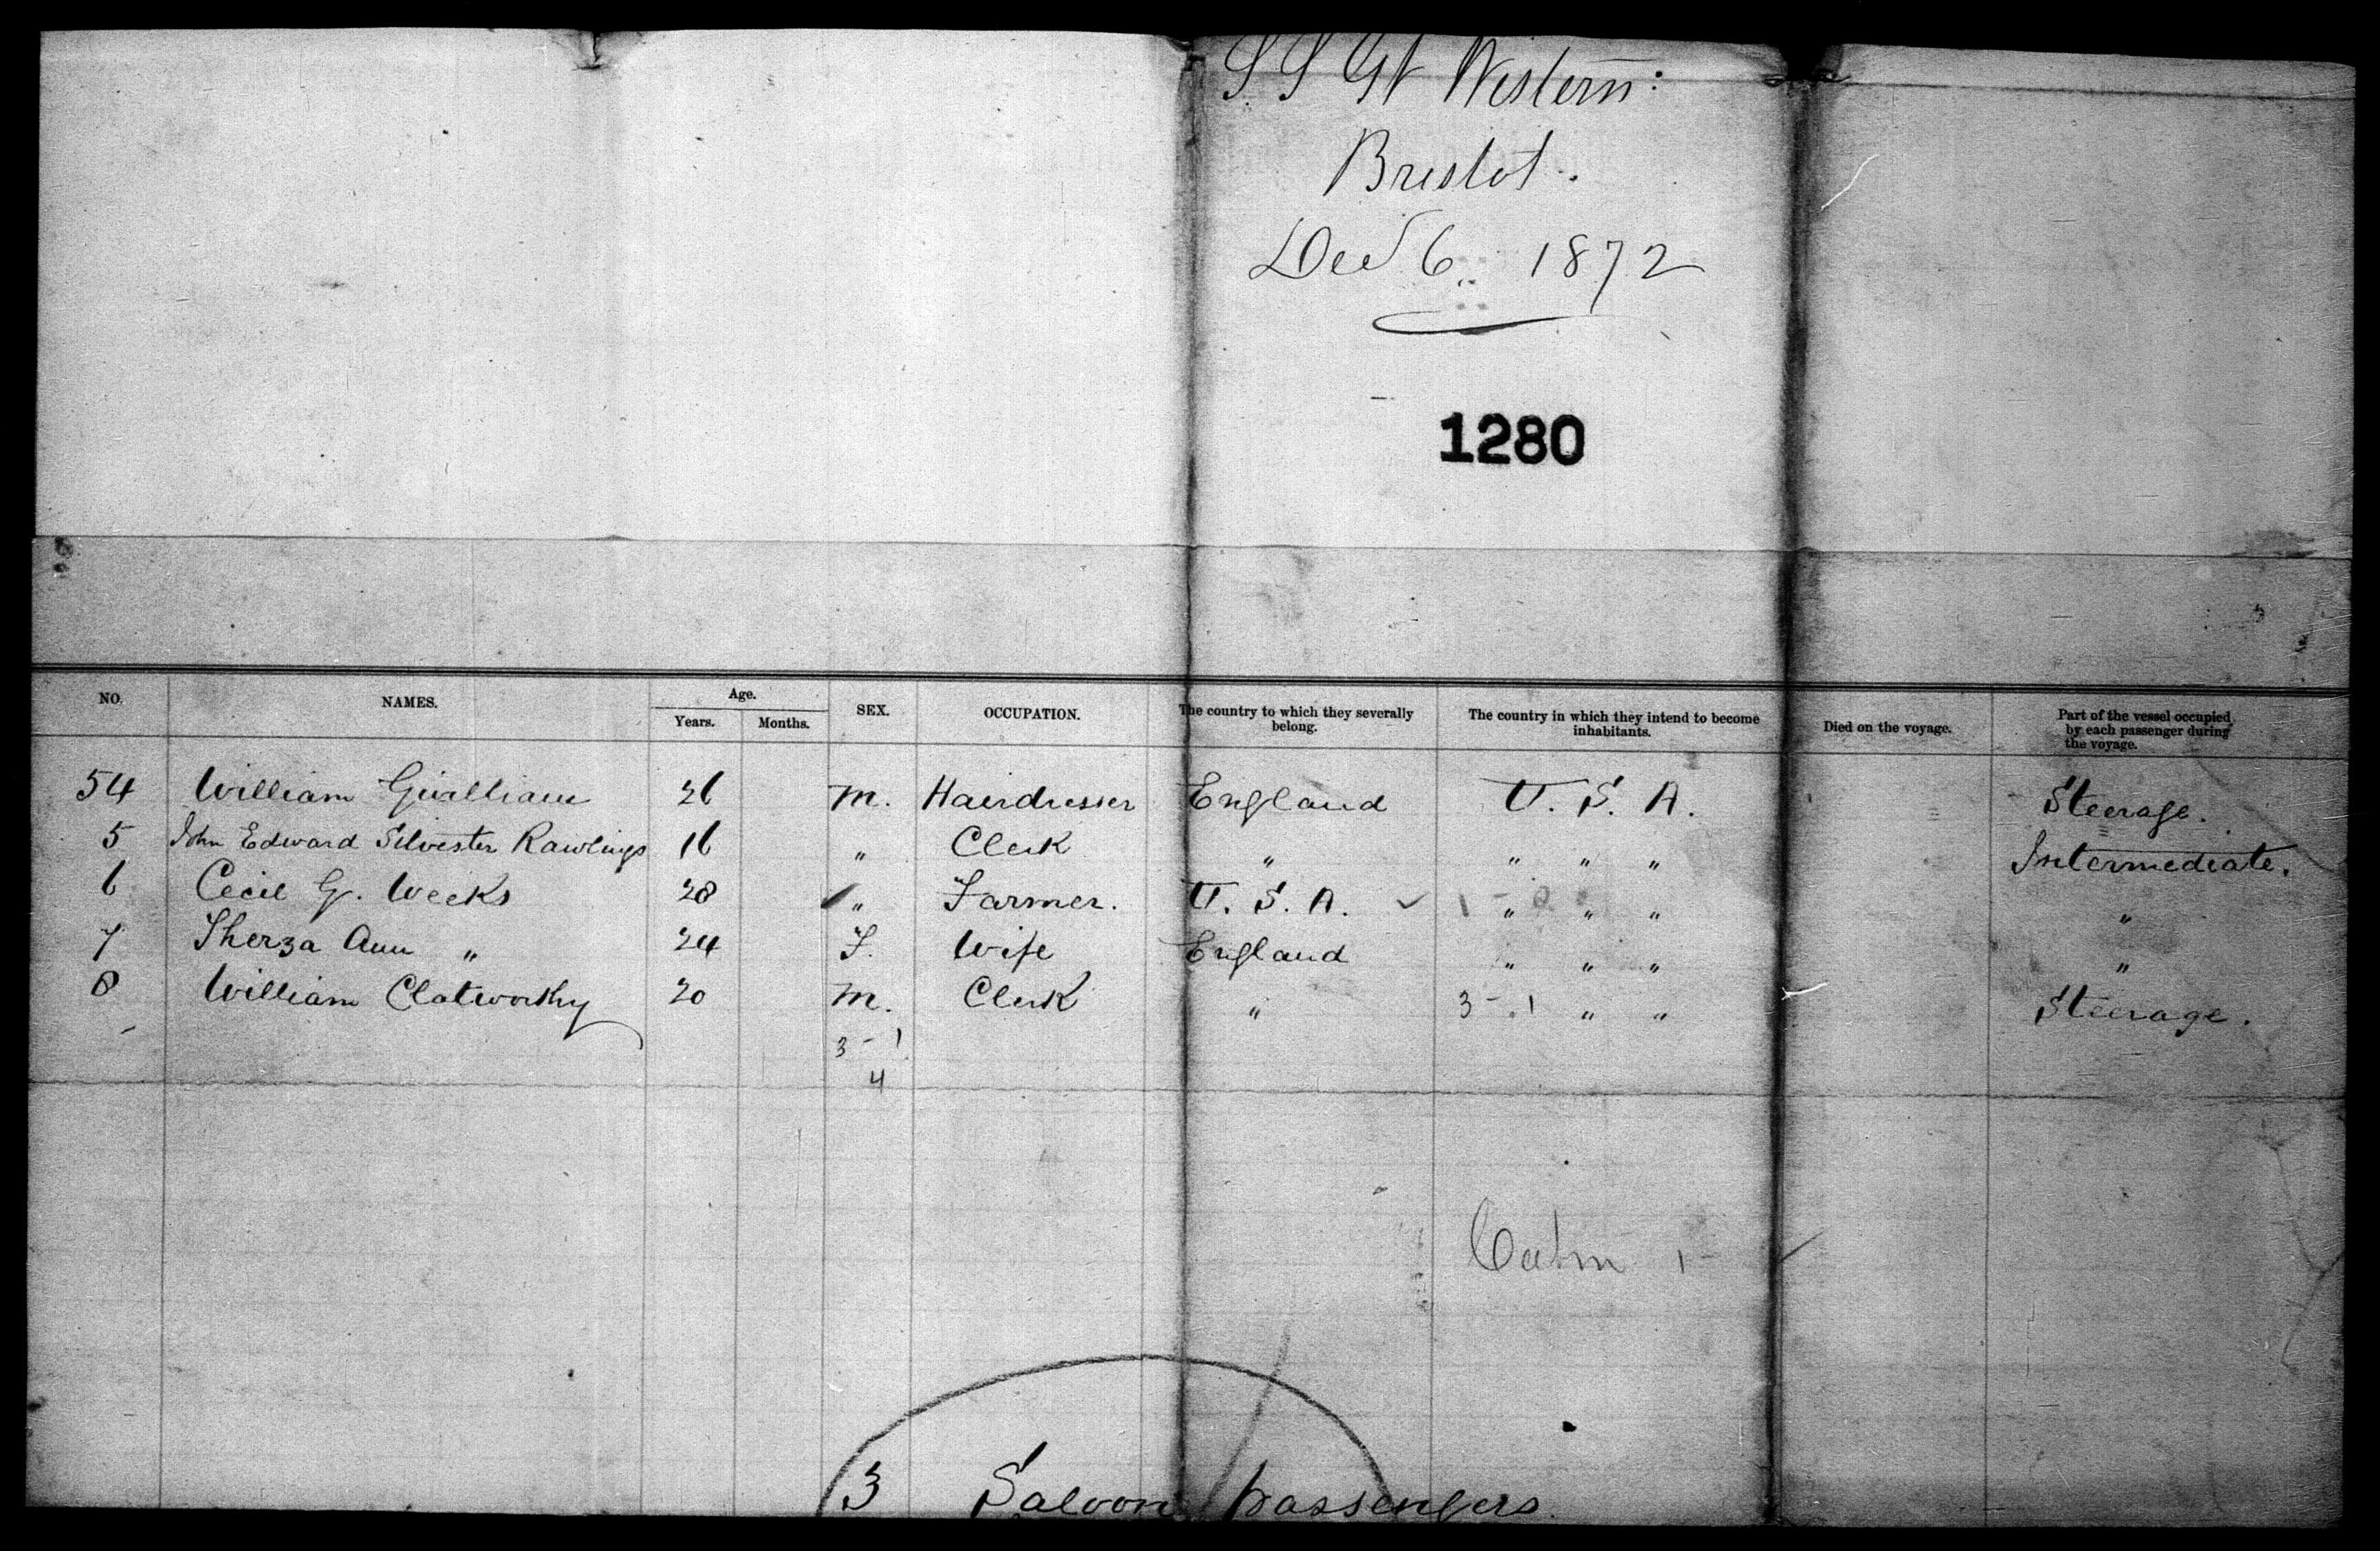 SS Gt Western:
Bristol.
Dec 6. 1872
1280
NO. NAMES. Age. Years. Months. SEX. OCCUPATION. The country to which they severally belong. The country in which they intend to become inhabitants. Died on the voyage. Part of the vessel occupied by each passenger during the voyage.
54 William Gwilliam 26 M. Hairdresser England U. S. A. Steerage.
5 John Edward Silvester Rawlings 16 " Clerk " " " " Intermediate.
6 Cecil G. Weeks 28 " Farmer. U. S. A. ✓ 1 - " " " "
7 Therza Ann " 24 F. Wife England " " " "
8 William Clatworthy 20 M. Clerk " 3 - 1 " " " Steerage.
3 - 1
4
3 Saloon passengers.